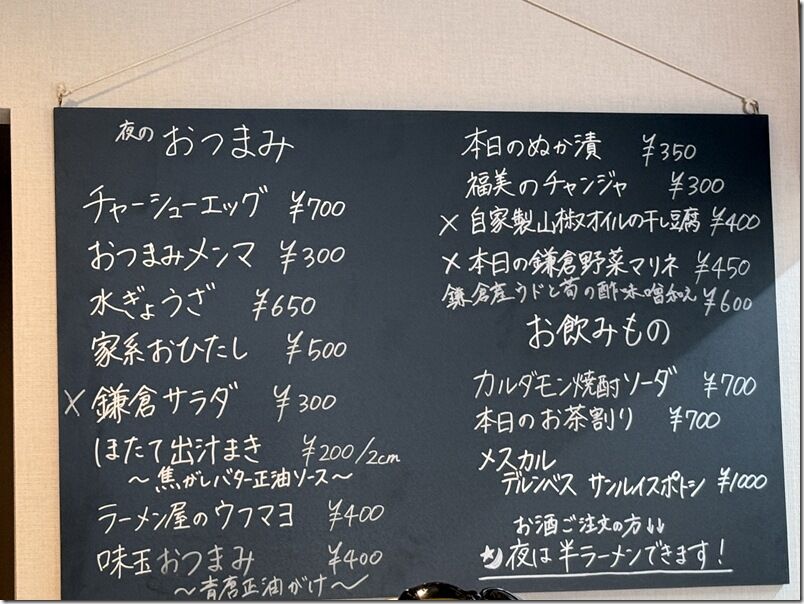 夜の おつまみ
チャーシューエッグ ¥700
おつまみメンマ ¥300
水ぎょうざ ¥650
家系おひたし ¥500
× 鎌倉サラダ ¥300
ほたて出汁まき ¥200/2cm
〜焦がしバター正油ソース〜
ラーメン屋のウフマヨ ¥400
味玉おつまみ ¥400
〜青唐正油がけ〜
本日のぬか漬 ¥350
福美のチャンジャ ¥300
× 自家製山椒オイルの干し豆腐 ¥400
× 本日の鎌倉野菜マリネ ¥450
鎌倉産ウドと筍の酢味噌和え ¥600
お飲みもの
カルダモン焼酎ソーダ ¥700
本日のお茶割り ¥700
メスカル
デルンベス サンルイスポトシ ¥1000
お酒ご注文の方↓↓
夜は半ラーメンできます!